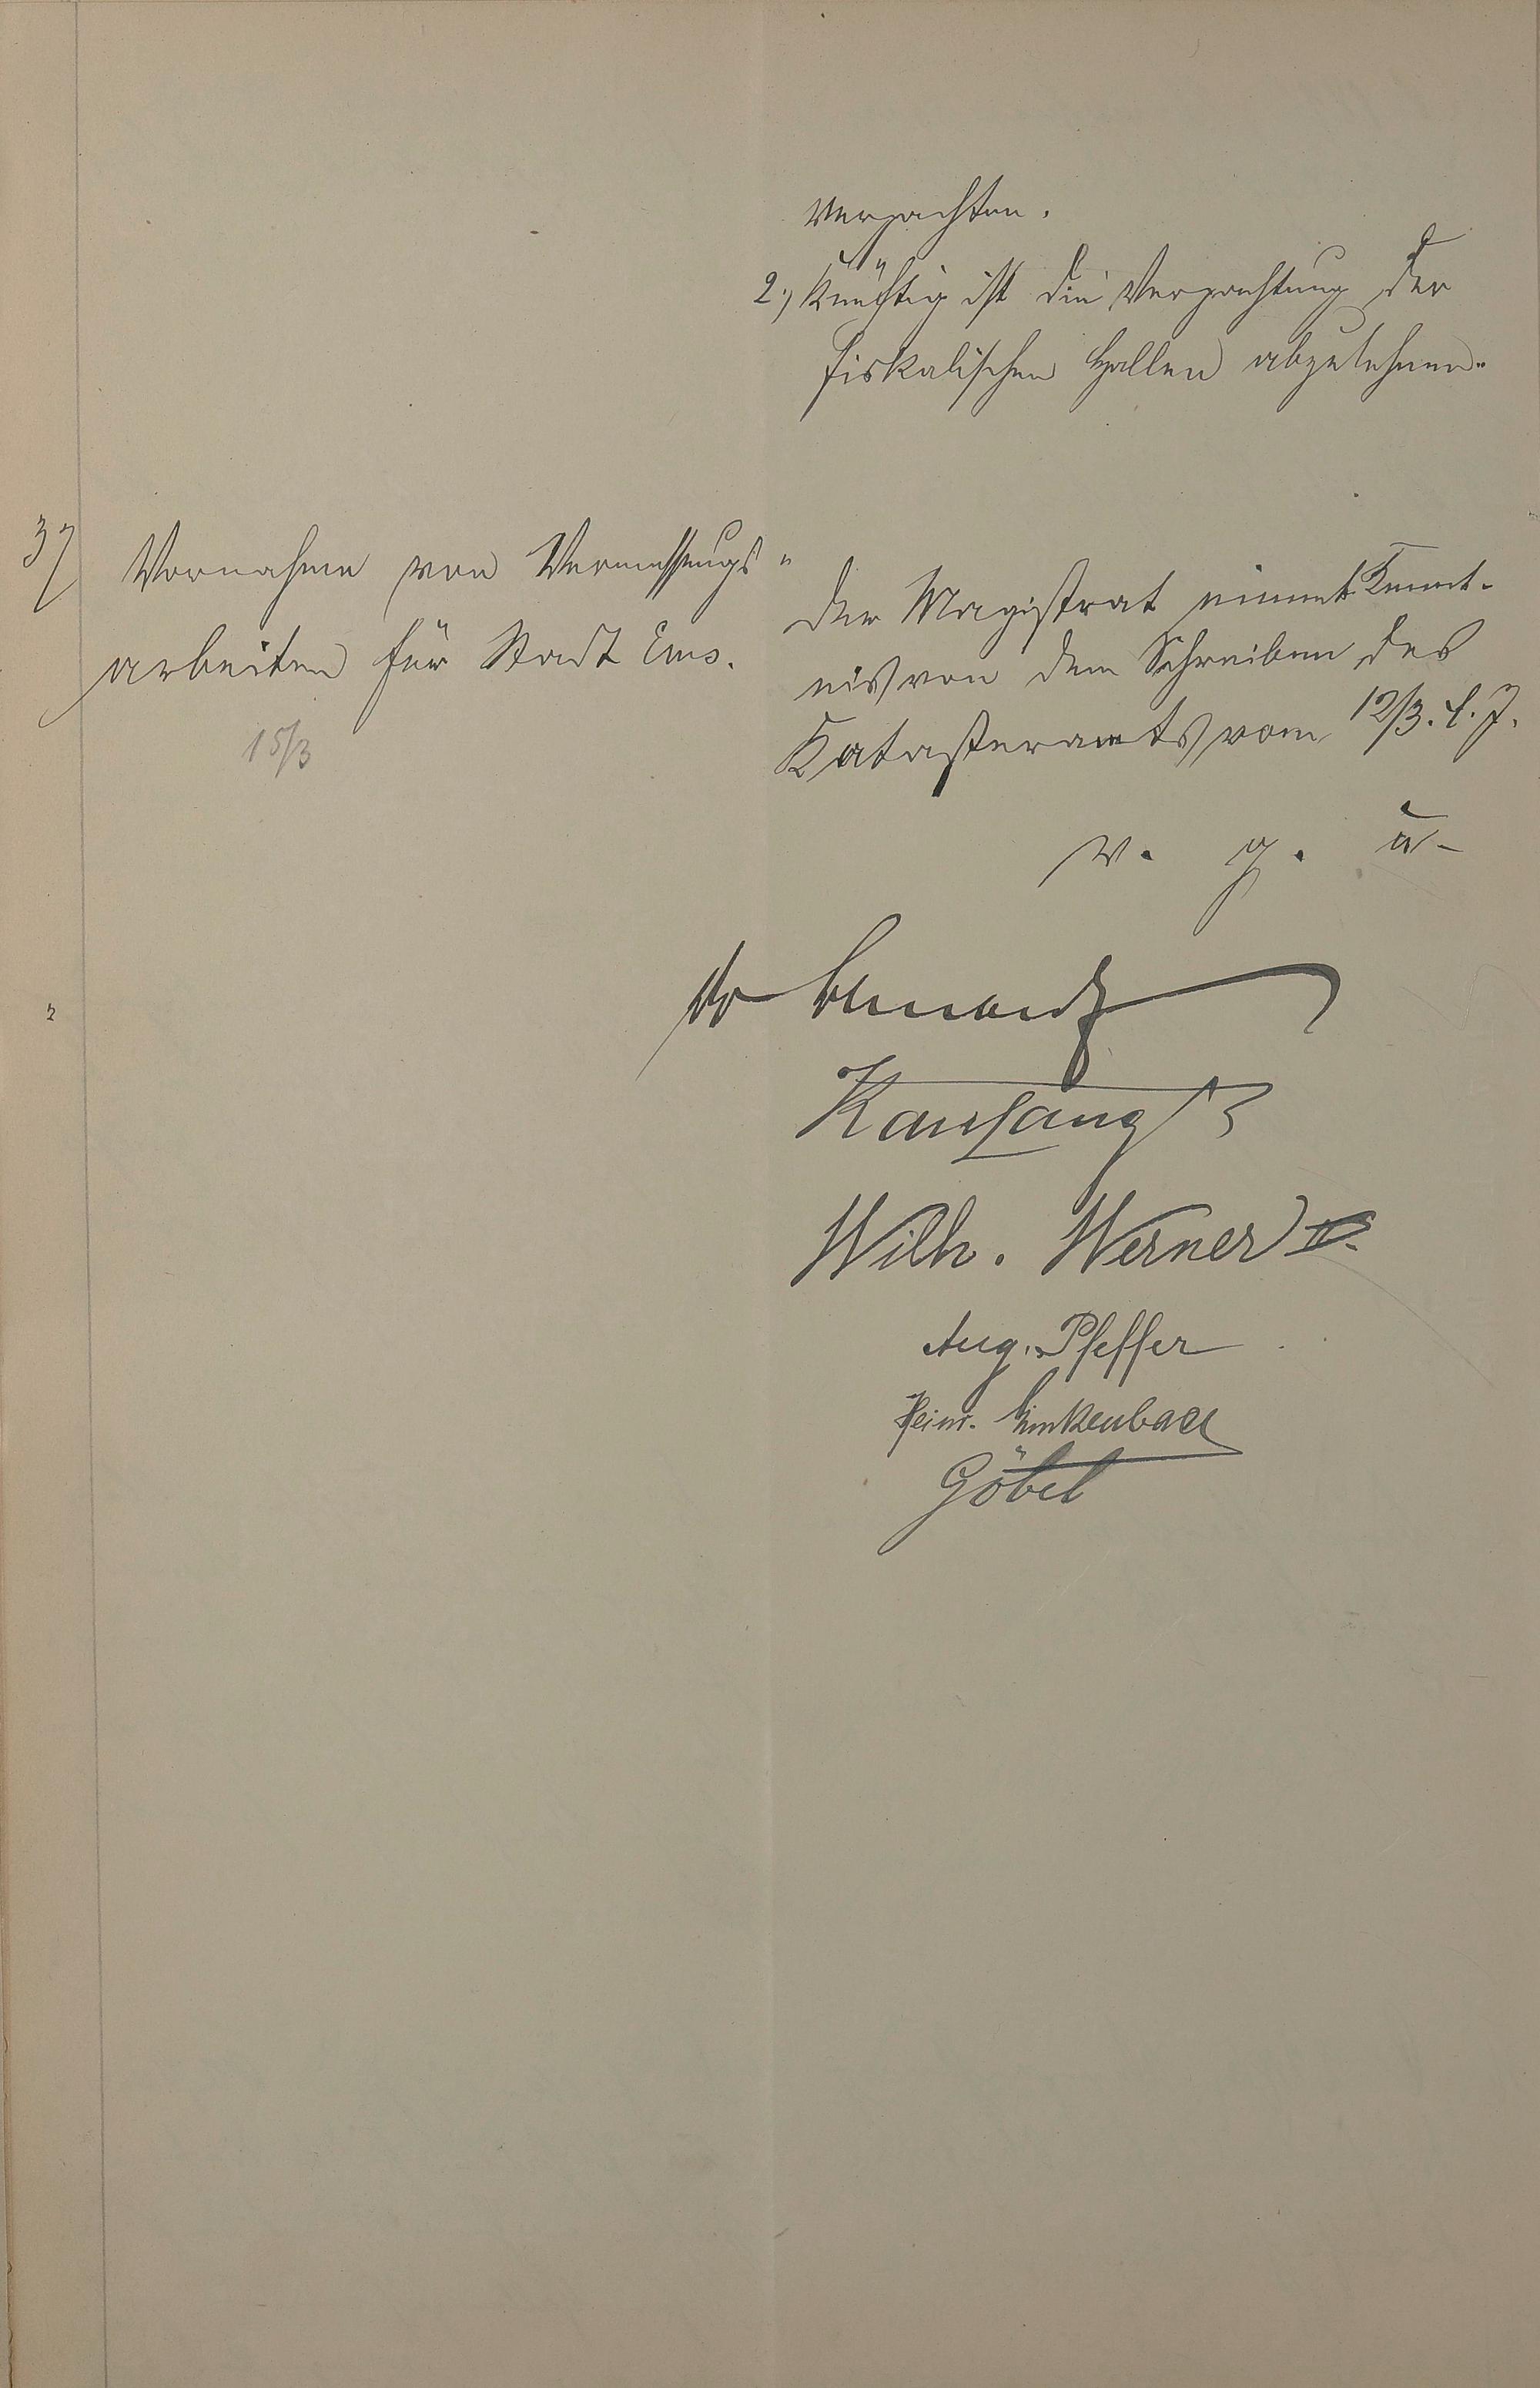 verpachten.
2.) Künftig ist die Verpachtung der
fiskalischen Hallen abzulehnen.
37 Vornahme von Vermessungs-
arbeiten für Stadt Ems.
15/3
Der Magistrat nimmt Kennt-
nis von dem Schreiben des
Katasteramts vom 12/3. l. J.
v. g. u.
Dr
Wilh. Werner
Aug. Pfeffer
Heinr. Linkenbach
Göbel